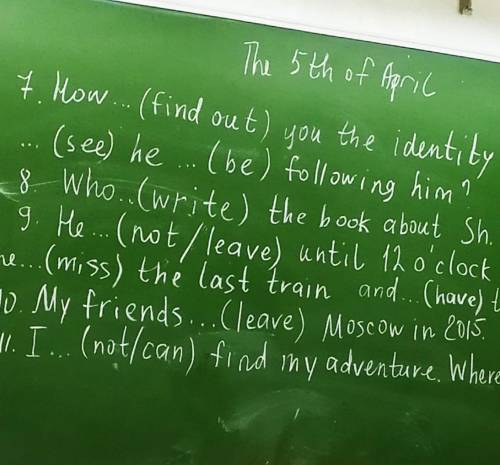 The 5th of April
7. How... (find out) you the identity
... (see) he ... (be) following him?
8. Who...(write) the book about Sh.
9. He...(not/leave) until 12 o'clock
...(miss) the last train and...(have)
10. My friends...(leave) Moscow in 2015.
11. I... (not/can) find my adventure. Where